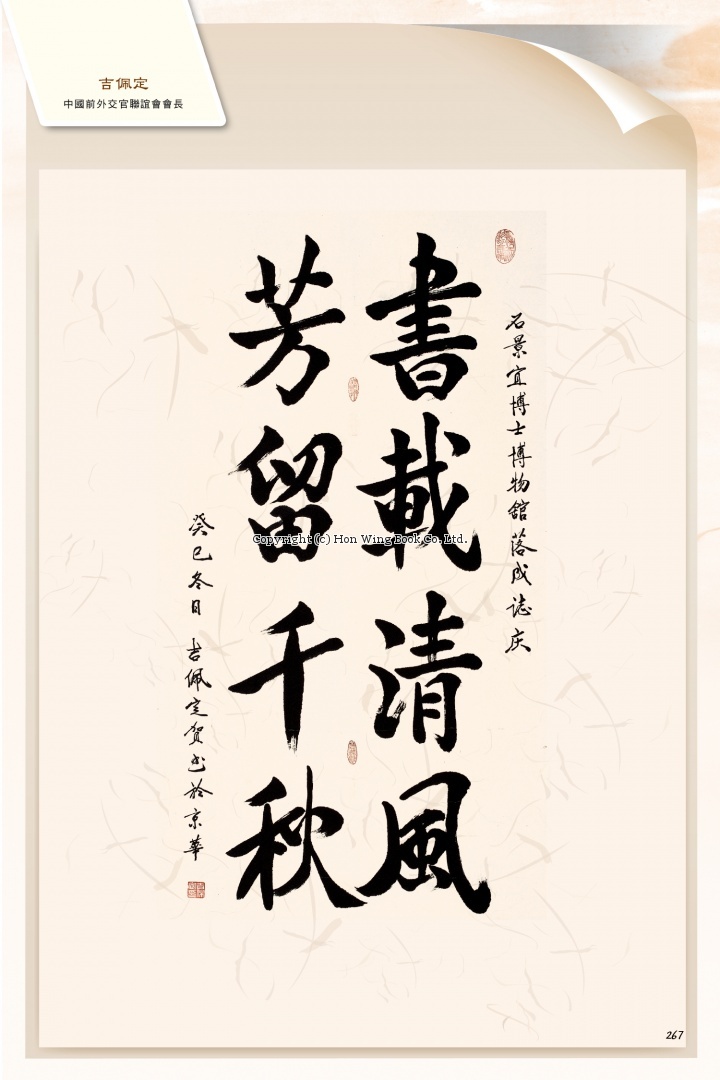 吉佩定
中國前外交官聯誼會會長
石景宜博士博物館落成誌庆
書載清風
芳留千秋
癸巳冬日 吉佩定贺书於京華
Copyright (c) Hon Wing Book Co. Ltd.
267